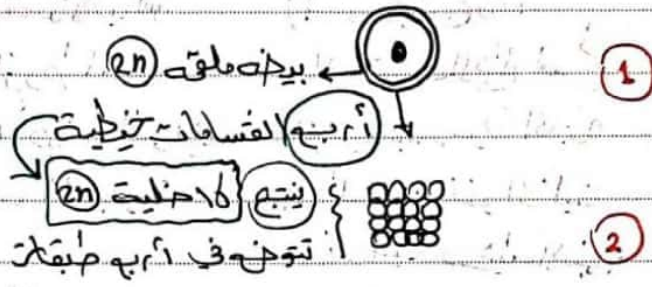 1 بيضه ملقحه ← 2n
أربع انقسامات خيطية
ينتج 16 خلية 2n
2 تتوضع في أربع طبقات